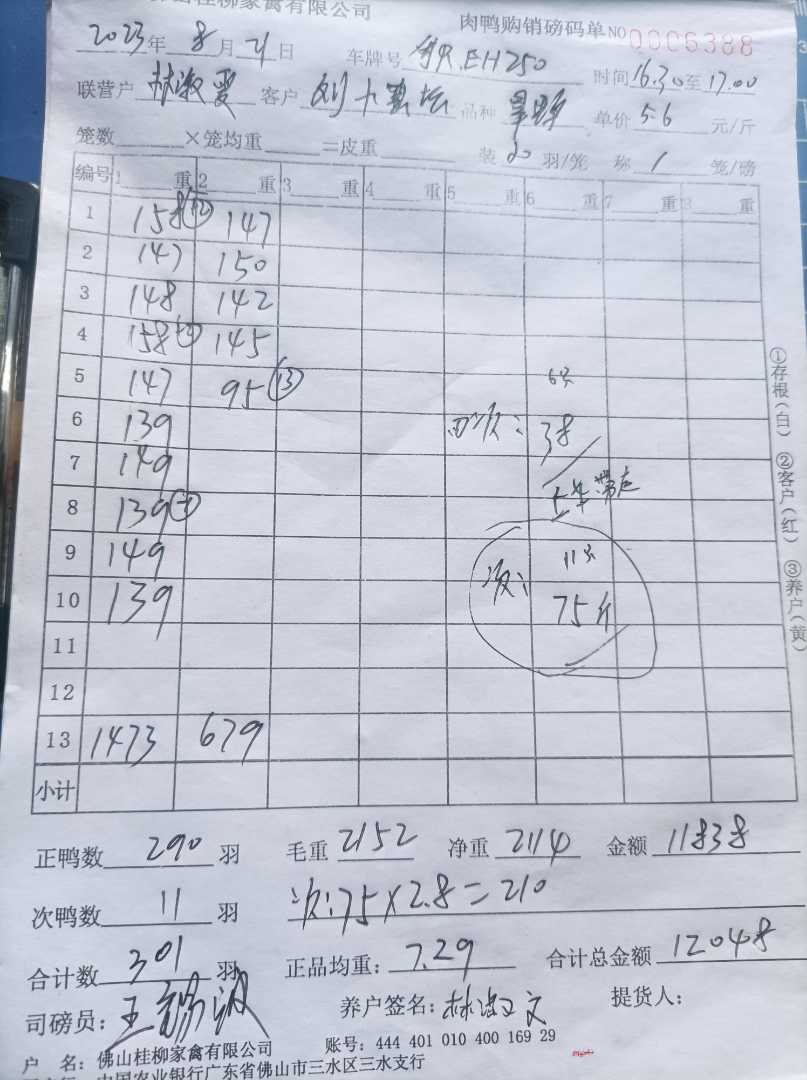 佛山桂柳家禽有限公司
肉鸭购销磅码单 NO 0006388
2023年 8 月 21 日 车牌号 EH250 时间16.30至17.00
联营户 林淑 客户 刘 品种 单价 5.6 元/斤
笼数 ×笼均重 =皮重 装 20 羽/笼 称 1 笼/磅
编号 1 重 2 重 3 重 4 重 5 重 6 重 7 重 8 重
1 158 147
2 147 150
3 148 142
4 158 145
5 147 95 ⑬ 6只
6 139 回次: 38
7 149
8 139 上车带走
9 149 次: 11只
10 139 75斤
11
12
13 1473 679
小计
①存根(白) ②客户(红) ③养户(黄)
正鸭数 290 羽 毛重 2152 净重 2114 金额 11838
次鸭数 11 羽 次:75×2.8=210
合计数 301 羽 正品均重: 7.29 合计总金额 12048
司磅员: 王 养户签名: 林淑文 提货人:
户 名: 佛山桂柳家禽有限公司 账号: 444 401 010 400 169 29
中国农业银行广东省佛山市三水区三水支行